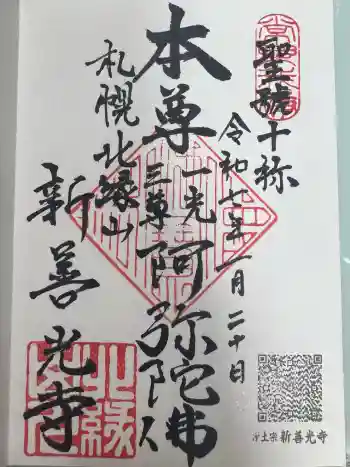 聖號十称
令和七年一月二十日
本尊一光三尊阿弥陀佛
札幌北縁山
新善光寺
北縁
浄土宗 新善光寺